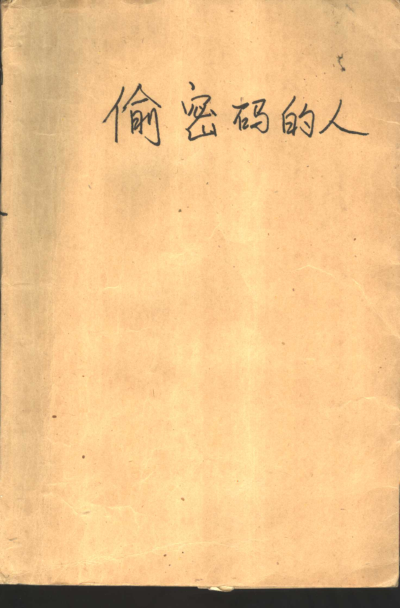 偷密码的人